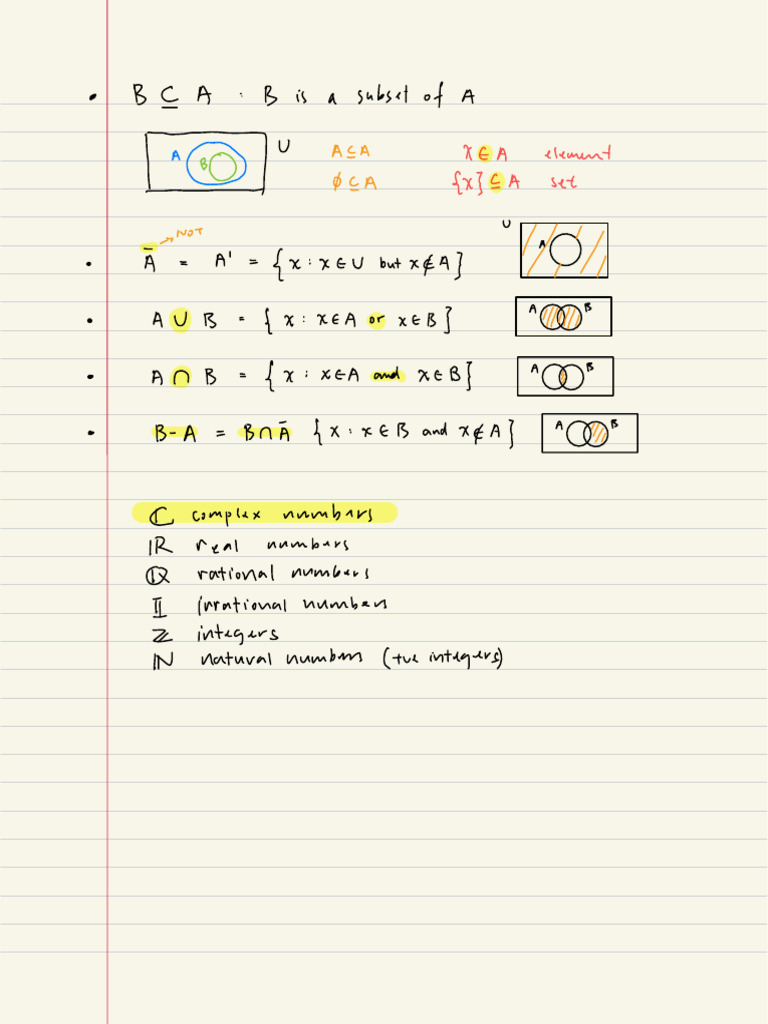 • B ⊆ A : B is a subset of A
A B U A ⊆ A x ∈ A element
∅ ⊆ A {x} ⊆ A set
NOT
• Ā = A' = {x : x ∈ U but x ∉ A} U A
• A ∪ B = {x : x ∈ A or x ∈ B} A B
• A ∩ B = {x : x ∈ A and x ∈ B} A B
• B - A = B ∩ Ā {x : x ∈ B and x ∉ A} A B
ℂ complex numbers
ℝ real numbers
ℚ rational numbers
𝕀 irrational numbers
ℤ integers
ℕ natural numbers (+ve integers)